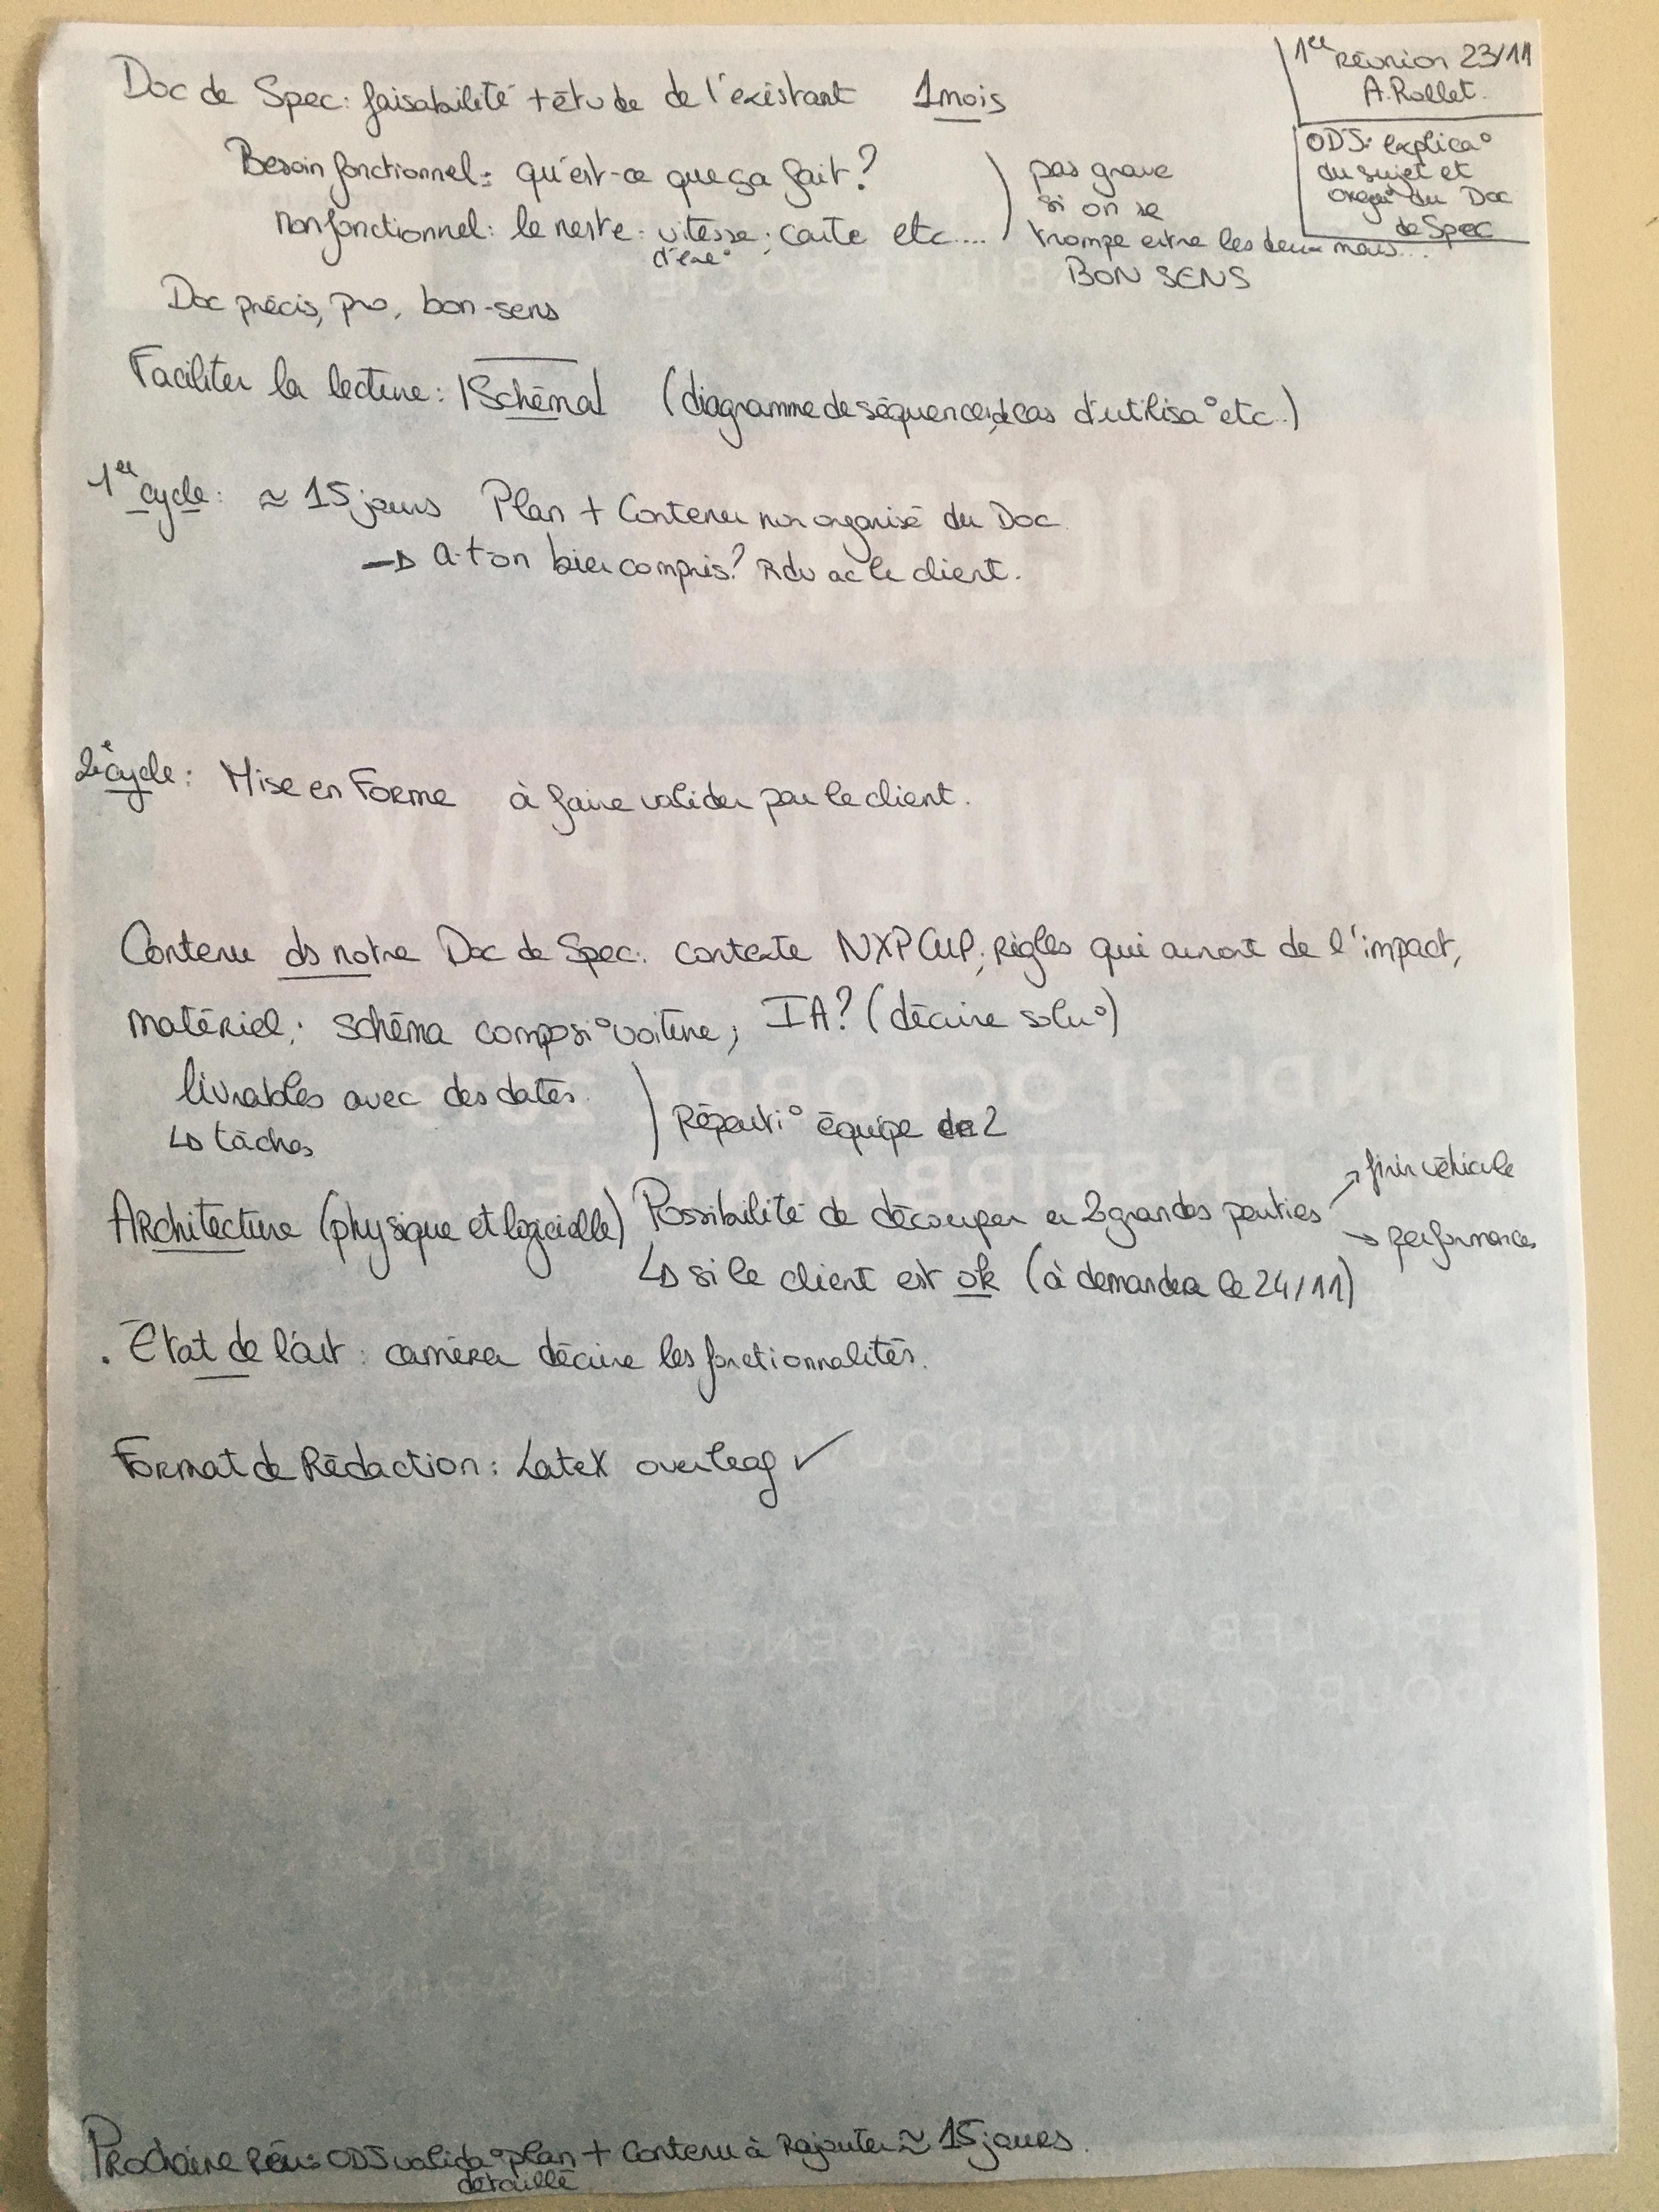 1er Réunion 23/11
A. Rollet.
ODJ: explica°
du sujet et
orga° du Doc
de Spec
Doc de Spec: faisabilité + étude de l'existant 1 mois
Besoin fonctionnel: qu'est-ce que ça fait?
non fonctionnel: le reste: vitesse; carte etc....
d'exé°
pas grave
si on se
trompe entre les deux mais...
BON SENS
Doc précis, pro, bon-sens
Faciliter la lecture: |Schéma| (diagramme de séquence, de cas d'utilisa° etc..)
1er cycle: ≈ 15 jours Plan + Contenu non organisé du Doc.
→ a-t-on bien compris? Rdv ac le client.
2e cycle: Mise en Forme à faire valider par le client.
Contenu ds notre Doc de Spec: contexte NXP CUP; Règles qui auront de l'impact,
matériel; schéma composi° voiture; IA? (décrire solu°)
livrables avec des dates.
↳ tâches
Réparti° équipe de 2
Architecture (physique et logicielle) Possibilité de découper en 2 grandes parties
→ finir véhicule
→ performances
↳ si le client est ok (à demander le 24/11)
. État de l'art: caméra décrire les fonctionnalités.
Format de Rédaction: LateX overleaf ✓
Prochaine Réu: ODJ valida° plan + Contenu à Rajouter ≈ 15 jours.
détaillé